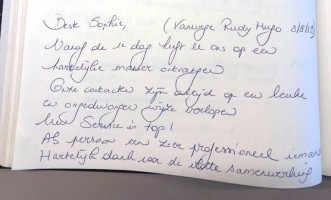 Beste Sophie, (Vanwege Rudy Hugo
Vanaf de 1e dag heeft je ons op een
hartelijke manier ontvangen
Onze contacten zijn altijd op een leuke
en ongedwongen wijze verlopen
Service is top!
Als persoon een zeer professioneel iemand
Hartelijk dank voor de vlotte samenwerking